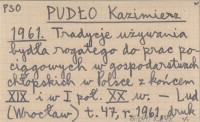 P30
PUDŁO Kazimierz
1961. Tradycje używania
bydła rogatego do prac po-
ciągowych w gospodarstwach
chłopskich w Polsce z końcem
XIX i w I poł. XX w. - Lud
(Wrocław) t. 47, r. 1961, druk